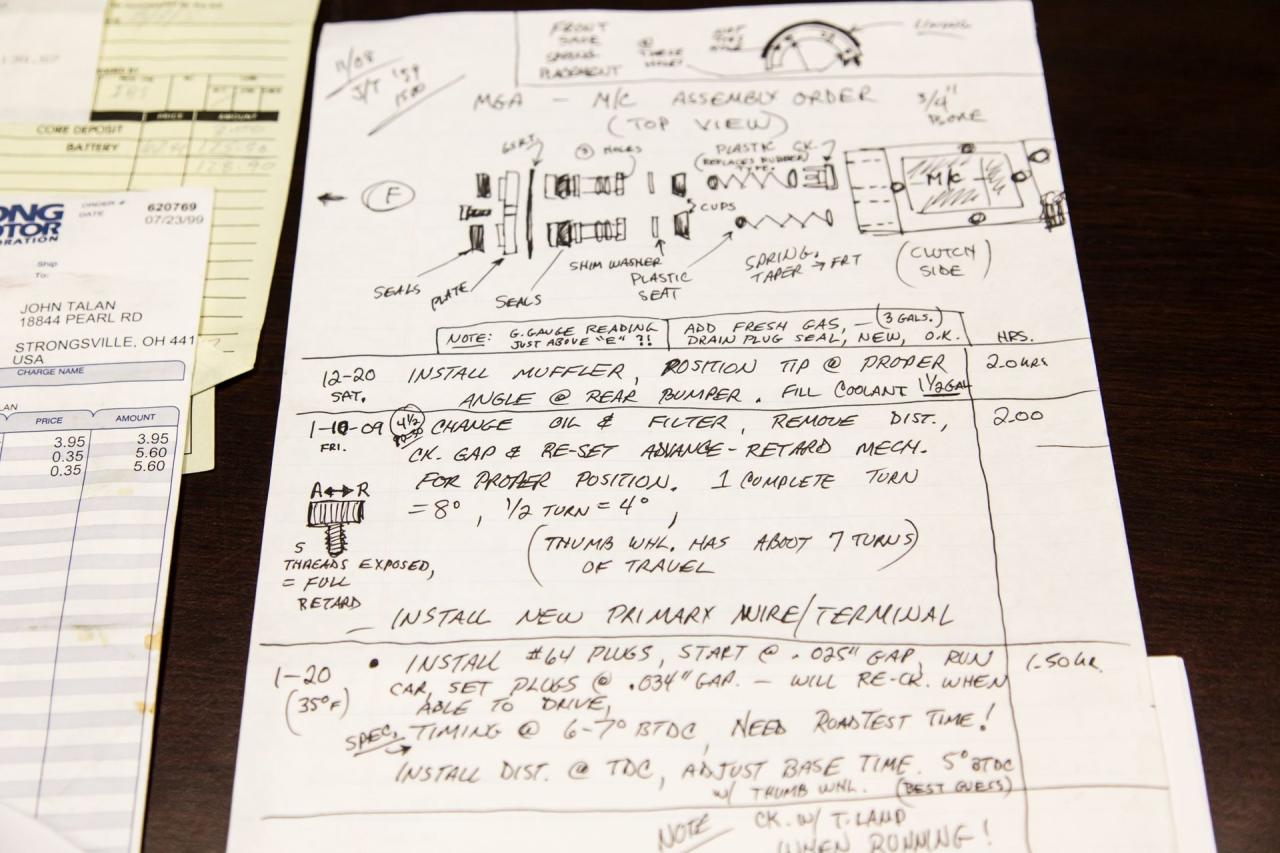 CORE DEPOSIT
BATTERY
PRICE
AMOUNT
ONG
OTOR
ORPORATION
ORDER #
620769
DATE
07/23/99
Ship
To:
JOHN TALAN
18844 PEARL RD
STRONGSVILLE, OH 441
USA
CHARGE NAME
LAN
PRICE AMOUNT
3.95 3.95
0.35 5.60
0.35 5.60
11/08
J/T '59
1500
FRONT
SHOE
SPRING
PLACEMENT
@
THESE
HOLES
LINING
MGA - M/C ASSEMBLY ORDER
(TOP VIEW)
3/4"
BORE
F
GSKT.
HOLES
PLASTIC CK.
(REPLACES RUBBER
TYPE)
M/C
CUPS
SEALS
PLATE
SEALS
SHIM WASHER
PLASTIC
SEAT
SPRING,
TAPER → FRT
(CLUTCH
SIDE)
NOTE: G.GAUGE READING
JUST ABOVE "E" ?!
ADD FRESH GAS, - (3 GALS.)
DRAIN PLUG SEAL, NEW, O.K.
HRS.
12-20
SAT.
INSTALL MUFFLER, POSITION TIP @ PROPER
ANGLE @ REAR BUMPER. FILL COOLANT 1 1/2 GAL
2.0 HRS
1-10-09
FRI.
4 1/2
CHANGE OIL & FILTER, REMOVE DIST.,
CK. GAP & RE-SET ADVANCE-RETARD MECH.
FOR PROPER POSITION. 1 COMPLETE TURN
= 8°, 1/2 TURN = 4°,
(THUMB WHL. HAS ABOUT 7 TURNS)
OF TRAVEL
2.00
A ↔ R
5
THREADS EXPOSED,
= FULL
RETARD
— INSTALL NEW PRIMARY WIRE/TERMINAL
1-20
(35°F)
• INSTALL #64 PLUGS, START @ .025" GAP, RUN
CAR, SET PLUGS @ .034" GAP. - WILL RE-CK. WHEN
ABLE TO DRIVE,
1.50 HR.
SPEC. → TIMING @ 6-7° BTDC, NEED ROADTEST TIME!
INSTALL DIST. @ TDC, ADJUST BASE TIME. 5° BTDC
W/ THUMB WHL. (BEST GUESS)
NOTE CK. W/ T. LAND
WHEN RUNNING!